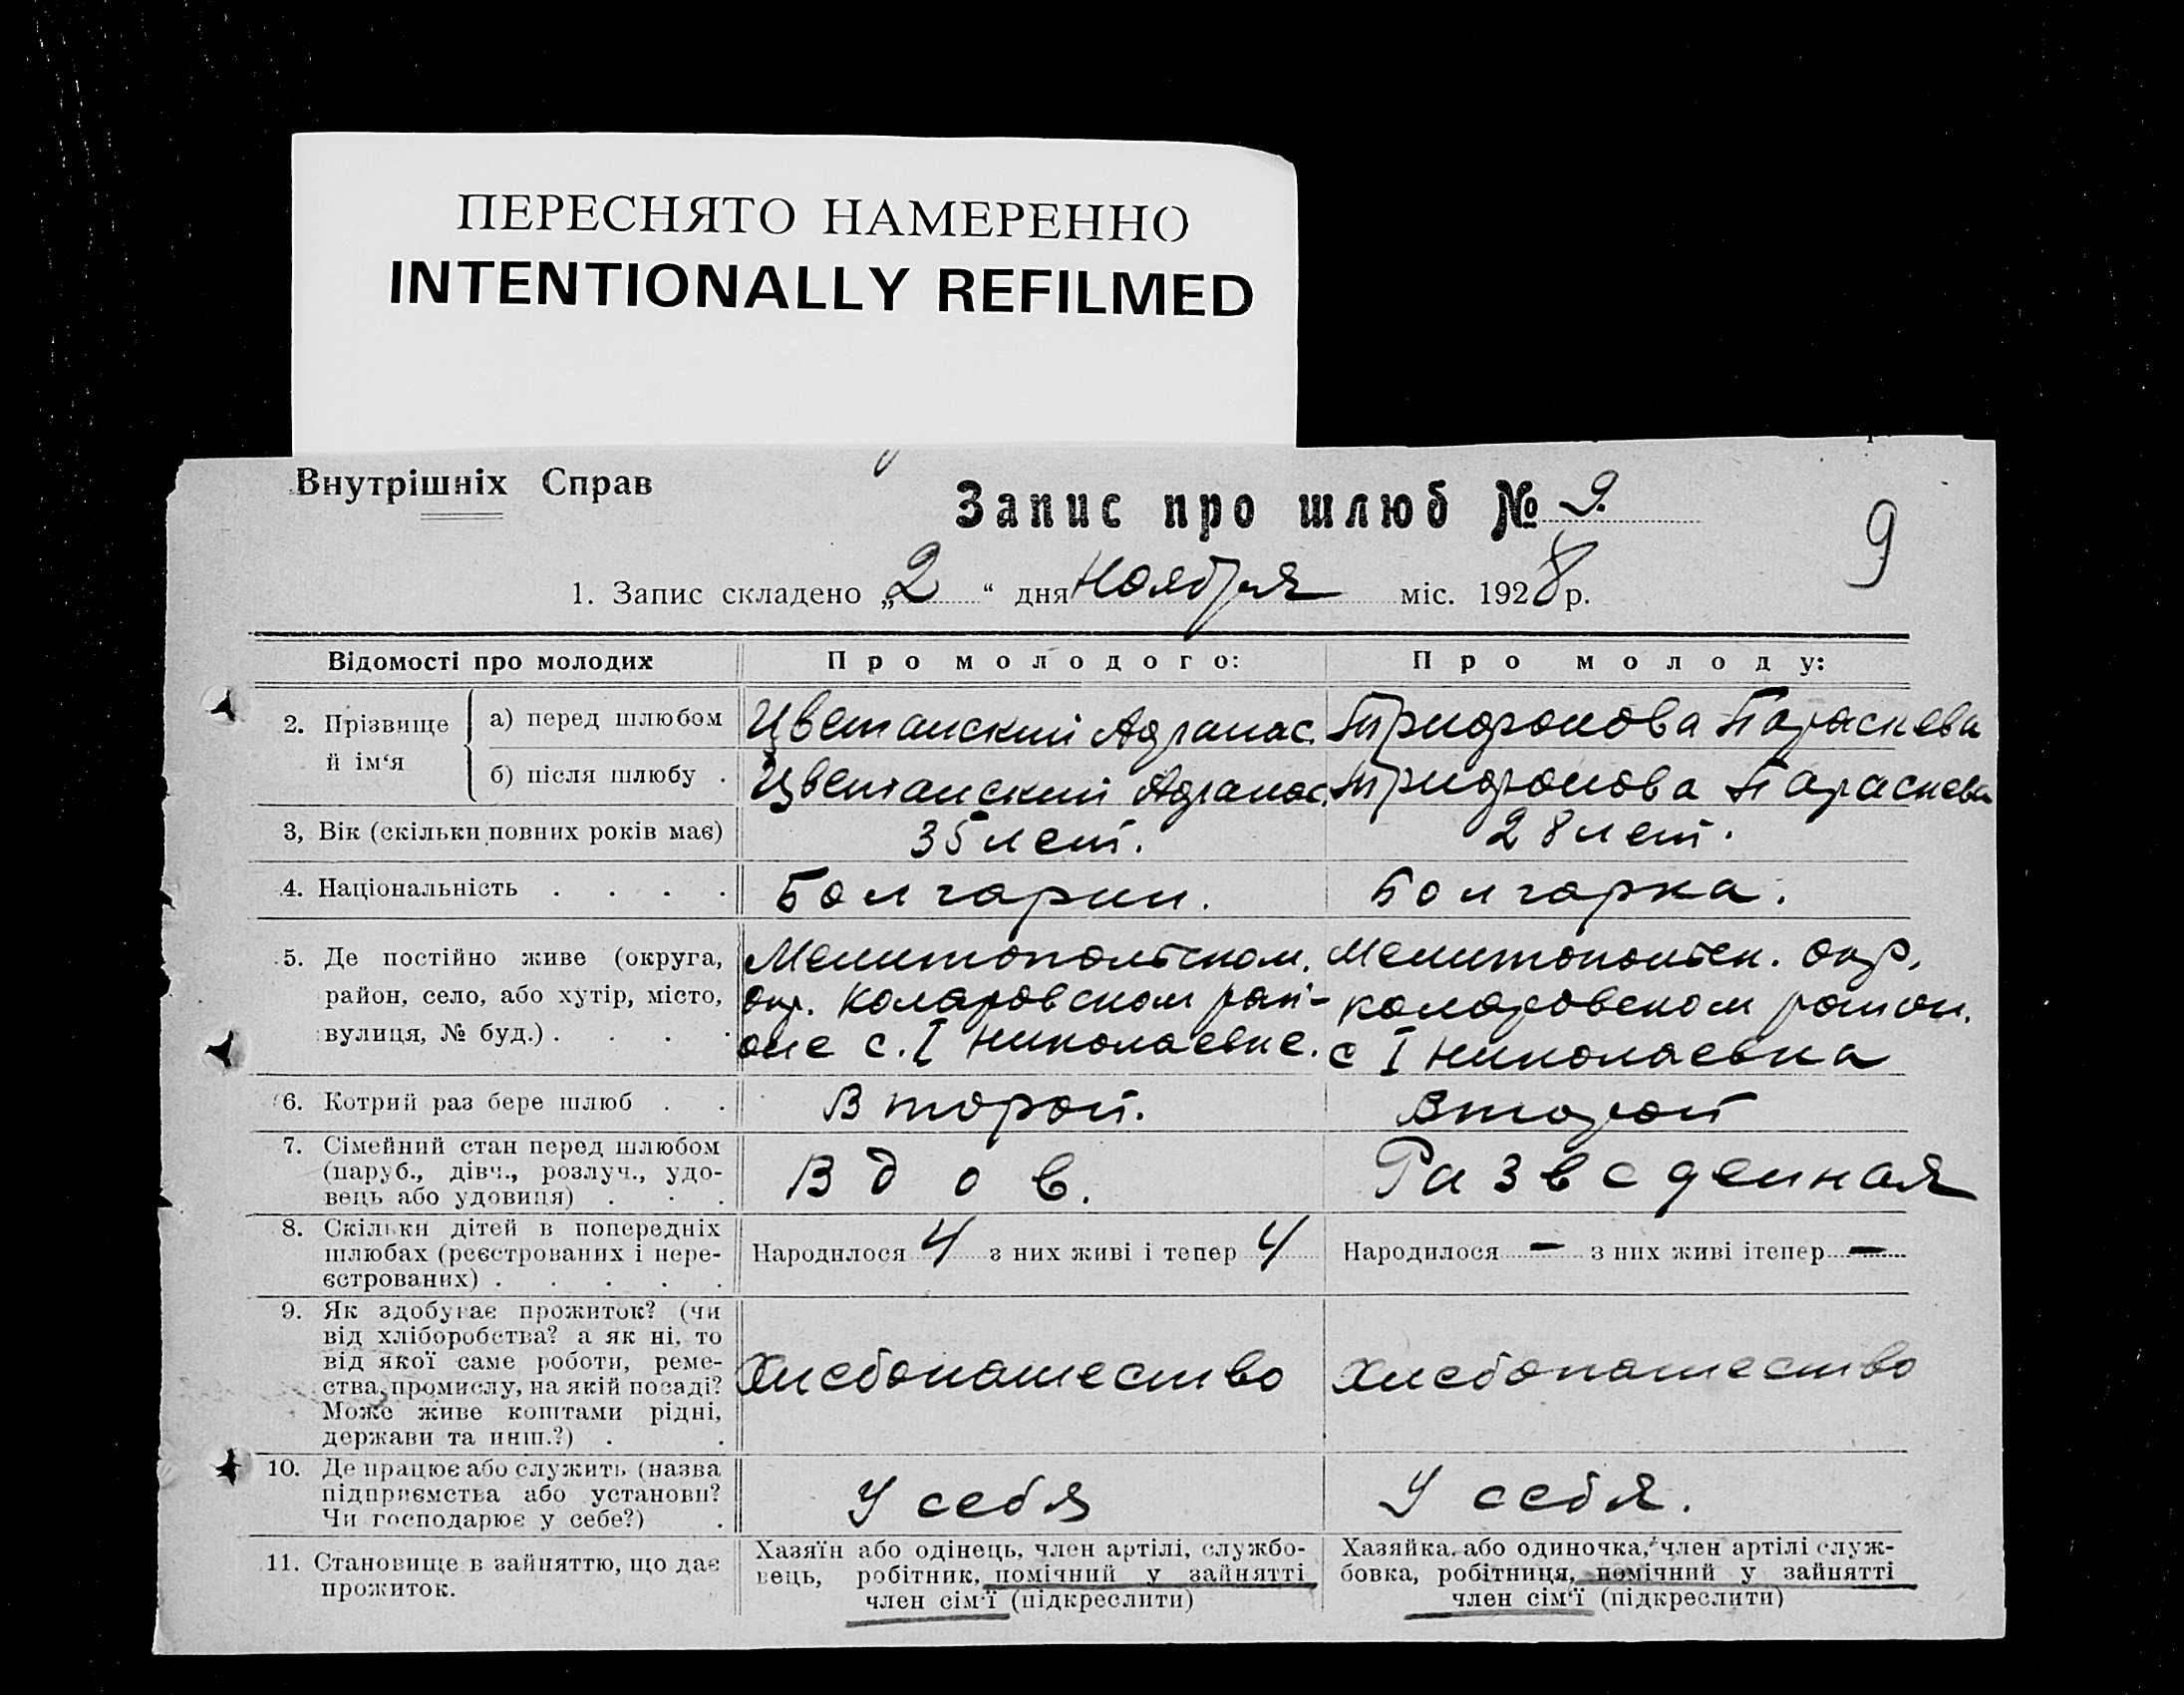 ПЕРЕСНЯТО НАМЕРЕННО
INTENTIONALLY REFILMED
Внутрішніх Справ
Запис про шлюб № 9.
9
1. Запис складено „2“ дня Ноября міс. 1928 р.
Відомості про молодих
Про молодого:
Про молоду:
2. Прізвище й ім‘я
а) перед шлюбом
Цветанский Афанас.
Трифонова Параскева
б) після шлюбу .
Цветанский Афанас.
Трифонова Параскева
3, Вік (скільки повних років має)
35 лет.
28 лет.
4. Національність . . . .
Болгарин.
Болгарка.
5. Де постійно живе (округа,
район, село, або хутір, місто,
вулиця, № буд.) . . . .
Мелитопольском.
окр. Коларовском рай-
оне с. I Николаевке.
Мелитопольск. окр.
коларовском район.
с I Николаевка
6. Котрий раз бере шлюб . .
Второй.
Второй
7. Сімейний стан перед шлюбом
(паруб., дівч., розлуч., удо-
вець або удовиця) . . .
Вдов.
Разведенная
8. Скільки дітей в попередніх
шлюбах (реєстрованих і нере-
єстрованих) . . . . .
Народилося 4 з них живі і тепер 4
Народилося — з них живі ітепер —
9. Як здобуває прожиток? (чи
від хліборобства? а як ні, то
від якої саме роботи, реме-
ства, промислу, на якій посаді?
Може живе коштами рідні,
держави та инш.?) . .
Хлебопашество
Хлебопашество
10. Де працює або служить (назва
підприємства або установи?
Чи господарює у себе?) .
У себя
У себя.
11. Становище в зайняттю, що дає
прожиток.
Хазяїн або одінець, член артілі, службо-
вець, робітник, помічний у зайнятті
член сім‘ї (підкреслити)
Хазяйка або одиночка, член артілі служ-
бовка, робітниця, помічний у зайнятті
член сім‘ї (підкреслити)